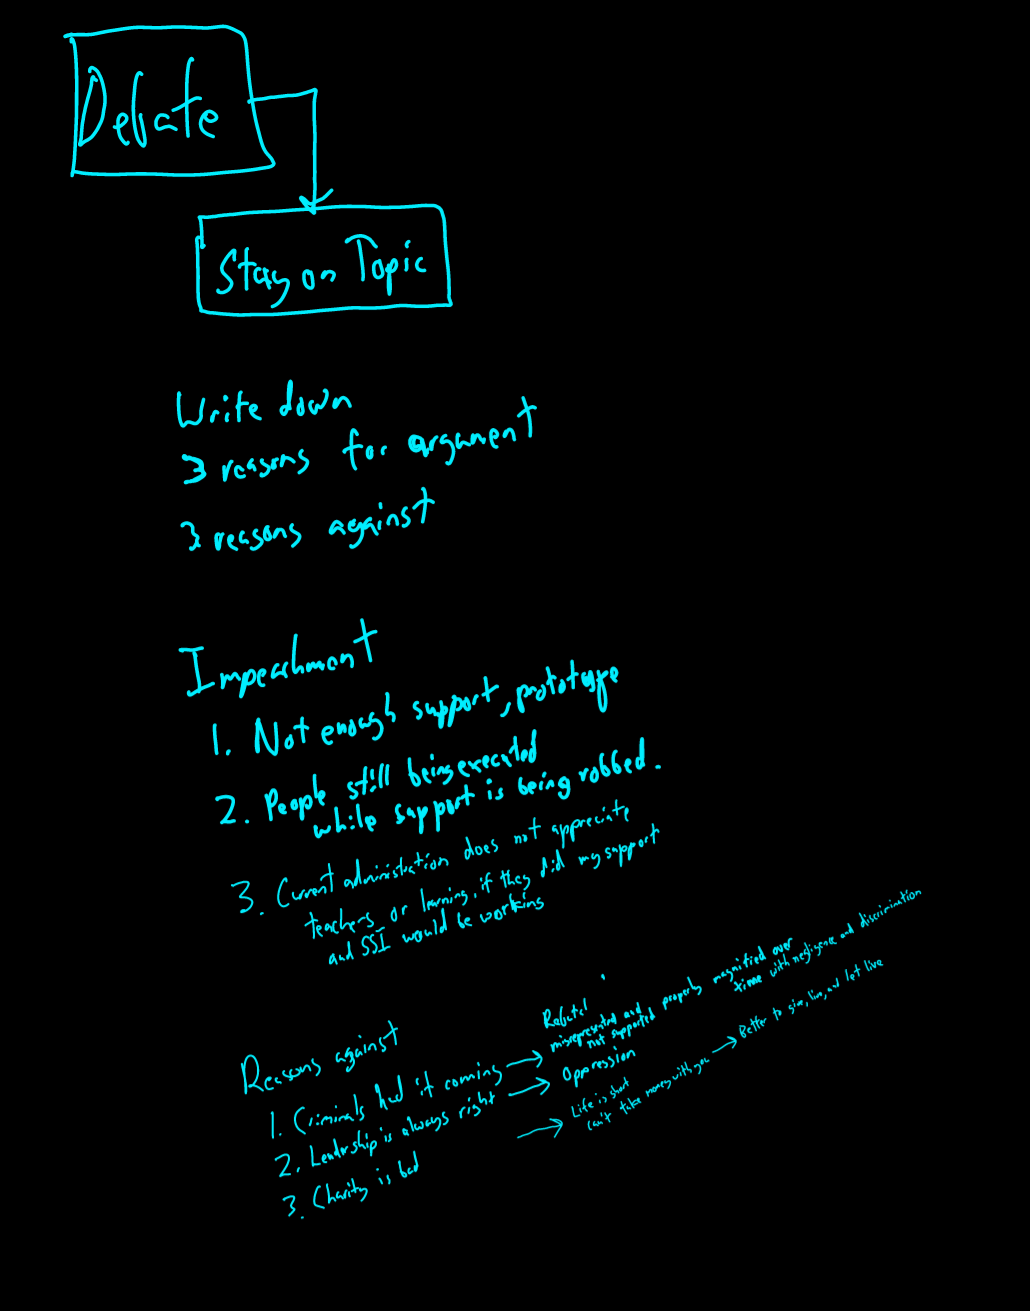 Debate
Stay on Topic
Write down
3 reasons for argument
3 reasons against
Impeachment
1. Not enough support, prototype
2. People still being executed
while support is being robbed.
3. Current administration does not appreciate
teachers or learning, if they did my support
and SSI would be working
Reasons against
1. Criminals had it coming
2. Leadership is always right
3. Charity is bad
Rebuttal
misrepresented and
not supported properly magnified over
time with negligence and discrimination
Oppression
Life is short
can't take money with you
Better to give, live, and let live